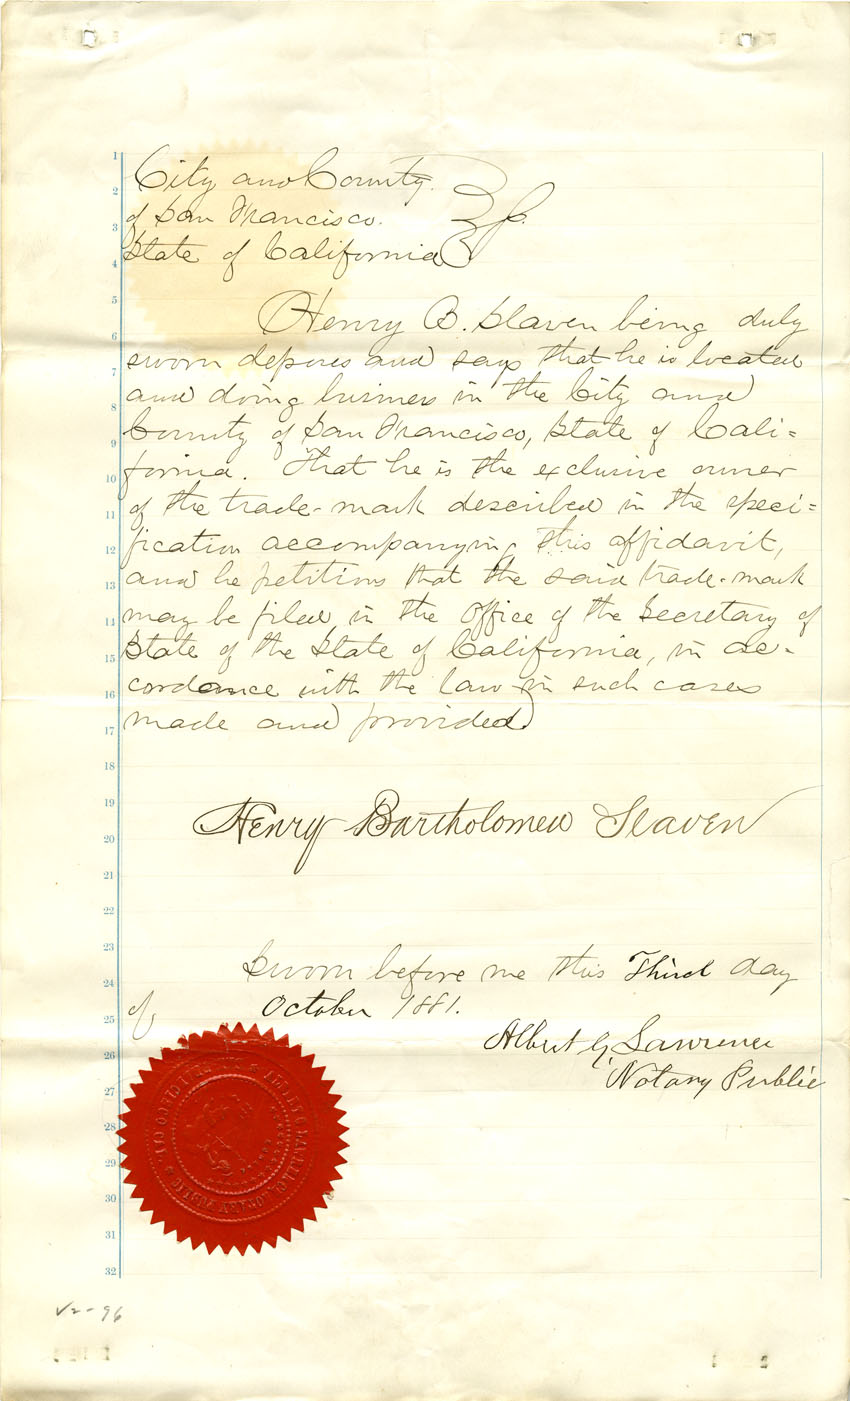 City and County
of San Francisco.
State of California
Henry B. Slaven being duly
sworn deposes and says that he is located
and doing business in the City and
County of San Francisco, State of Cali=
fornia. That he is the exclusive owner
of the trade-mark described in the speci=
fication accompanying this affidavit,
and he petitions that the said trade-mark
may be filed in the office of the Secretary of
State of the State of California, in ac-
cordance with the law in such cases
made and provided
Henry Bartholomew Slaven
Sworn before me this Third day
of October 1881.
Albert G Lawrence
Notary Public
1
2
3
4
5
6
7
8
9
10
11
12
13
14
15
16
17
18
19
20
21
22
23
24
25
26
27
28
29
30
31
32